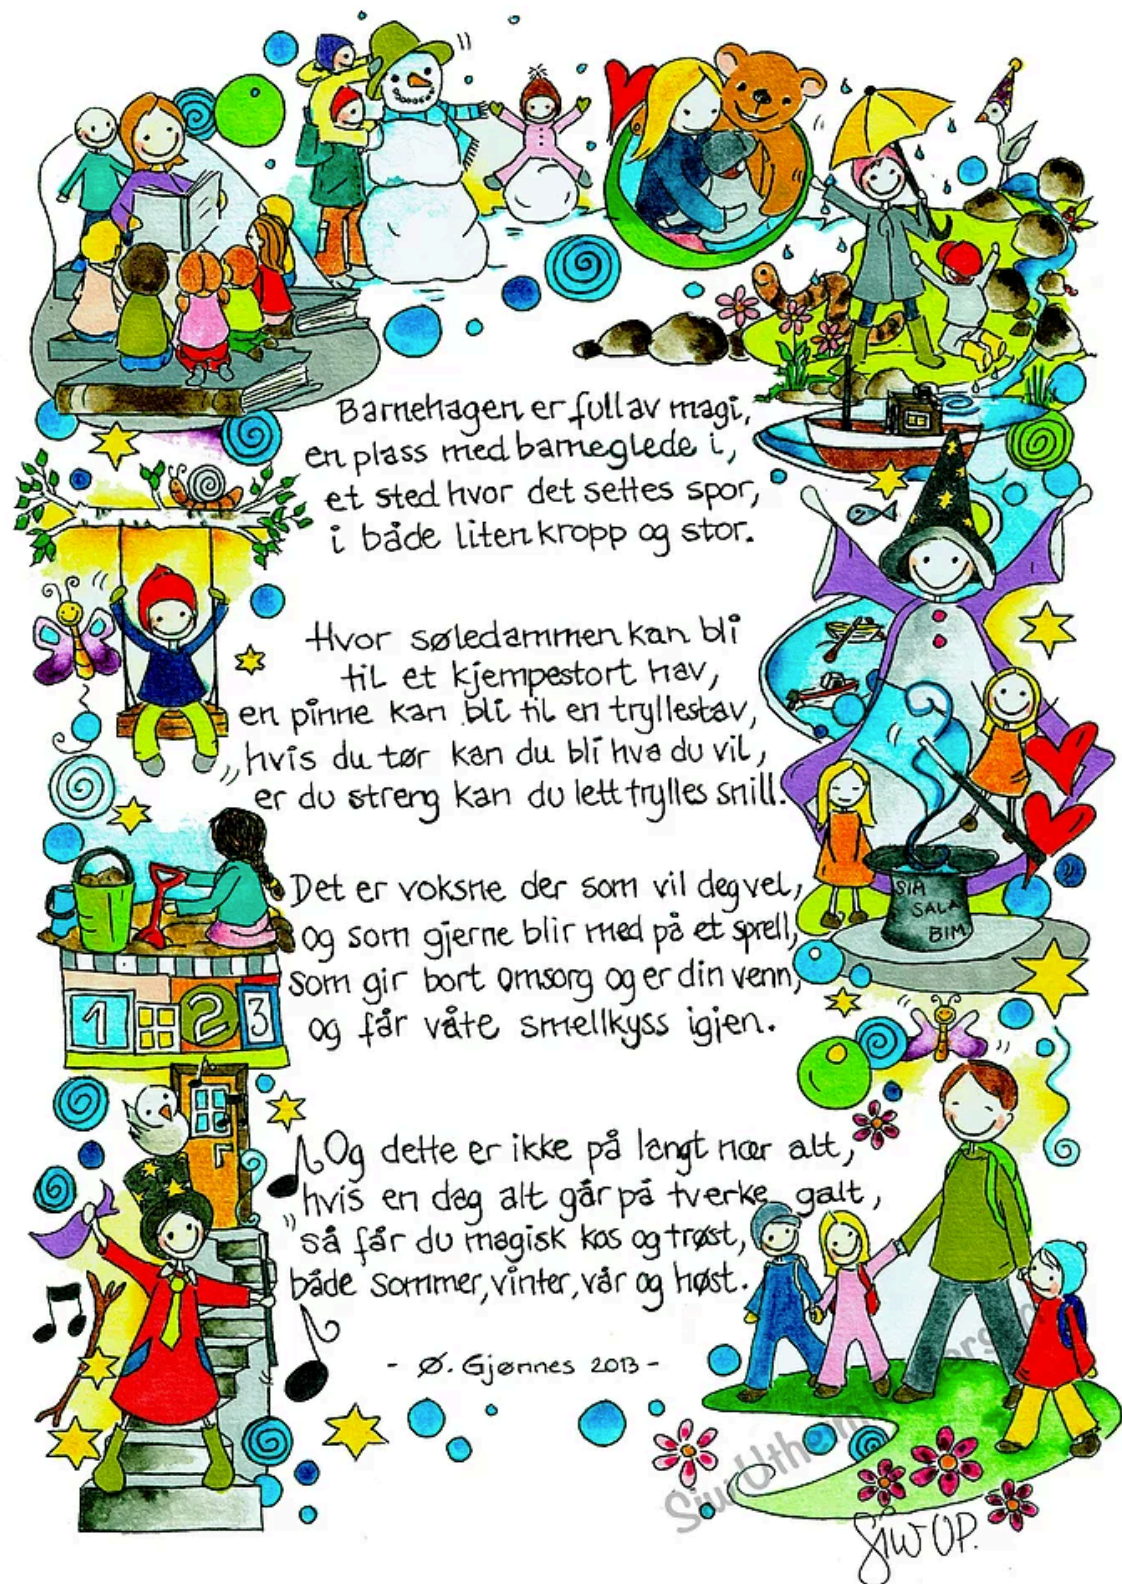 Barnehagen er full av magi,
en plass med barneglede i,
et sted hvor det settes spor,
i både liten kropp og stor.
Hvor søledammen kan bli
til et kjempestort hav,
en pinne kan bli til en tryllestav,
hvis du tør kan du bli hva du vil,
er du streng kan du lett trylles snill.
SIM
SALA
BIM
Det er voksne der som vil deg vel,
og som gjerne blir med på et sprell,
som gir bort omsorg og er din venn,
og får våte smellkyss igjen.
1 2 3
Og dette er ikke på langt nær alt,
hvis en dag alt går på tverke galt,
så får du magisk kos og trøst,
både sommer, vinter, vår og høst.
- Ø. Gjønnes 2013 -
Siw UP.